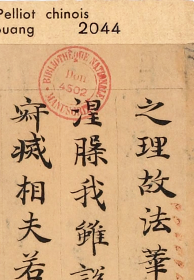 Pelliot chinois
ouang 2044
BIBLIOTHÈQUE NATIONALE
Don
4502
MANUSCRITS
之理故法華
涅槃我雖說
若夫相